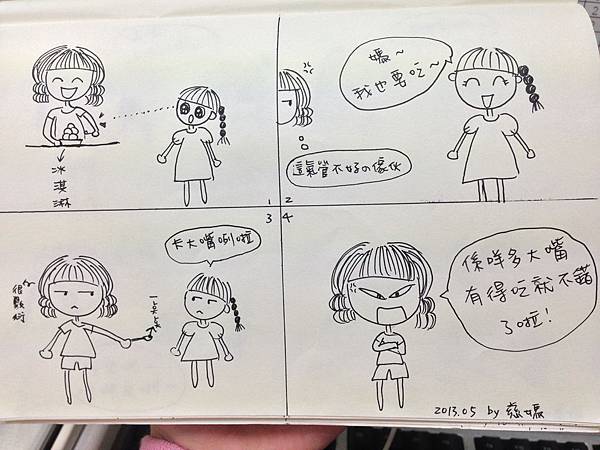 冰淇淋
1
媽~
我也要吃~
這氣管不好の傢伙
2
3
卡大嘴咧啦
很敷衍
一点点
4
係咩多大嘴
有得吃就不錯
了啦!
2013.05 by 慈媽